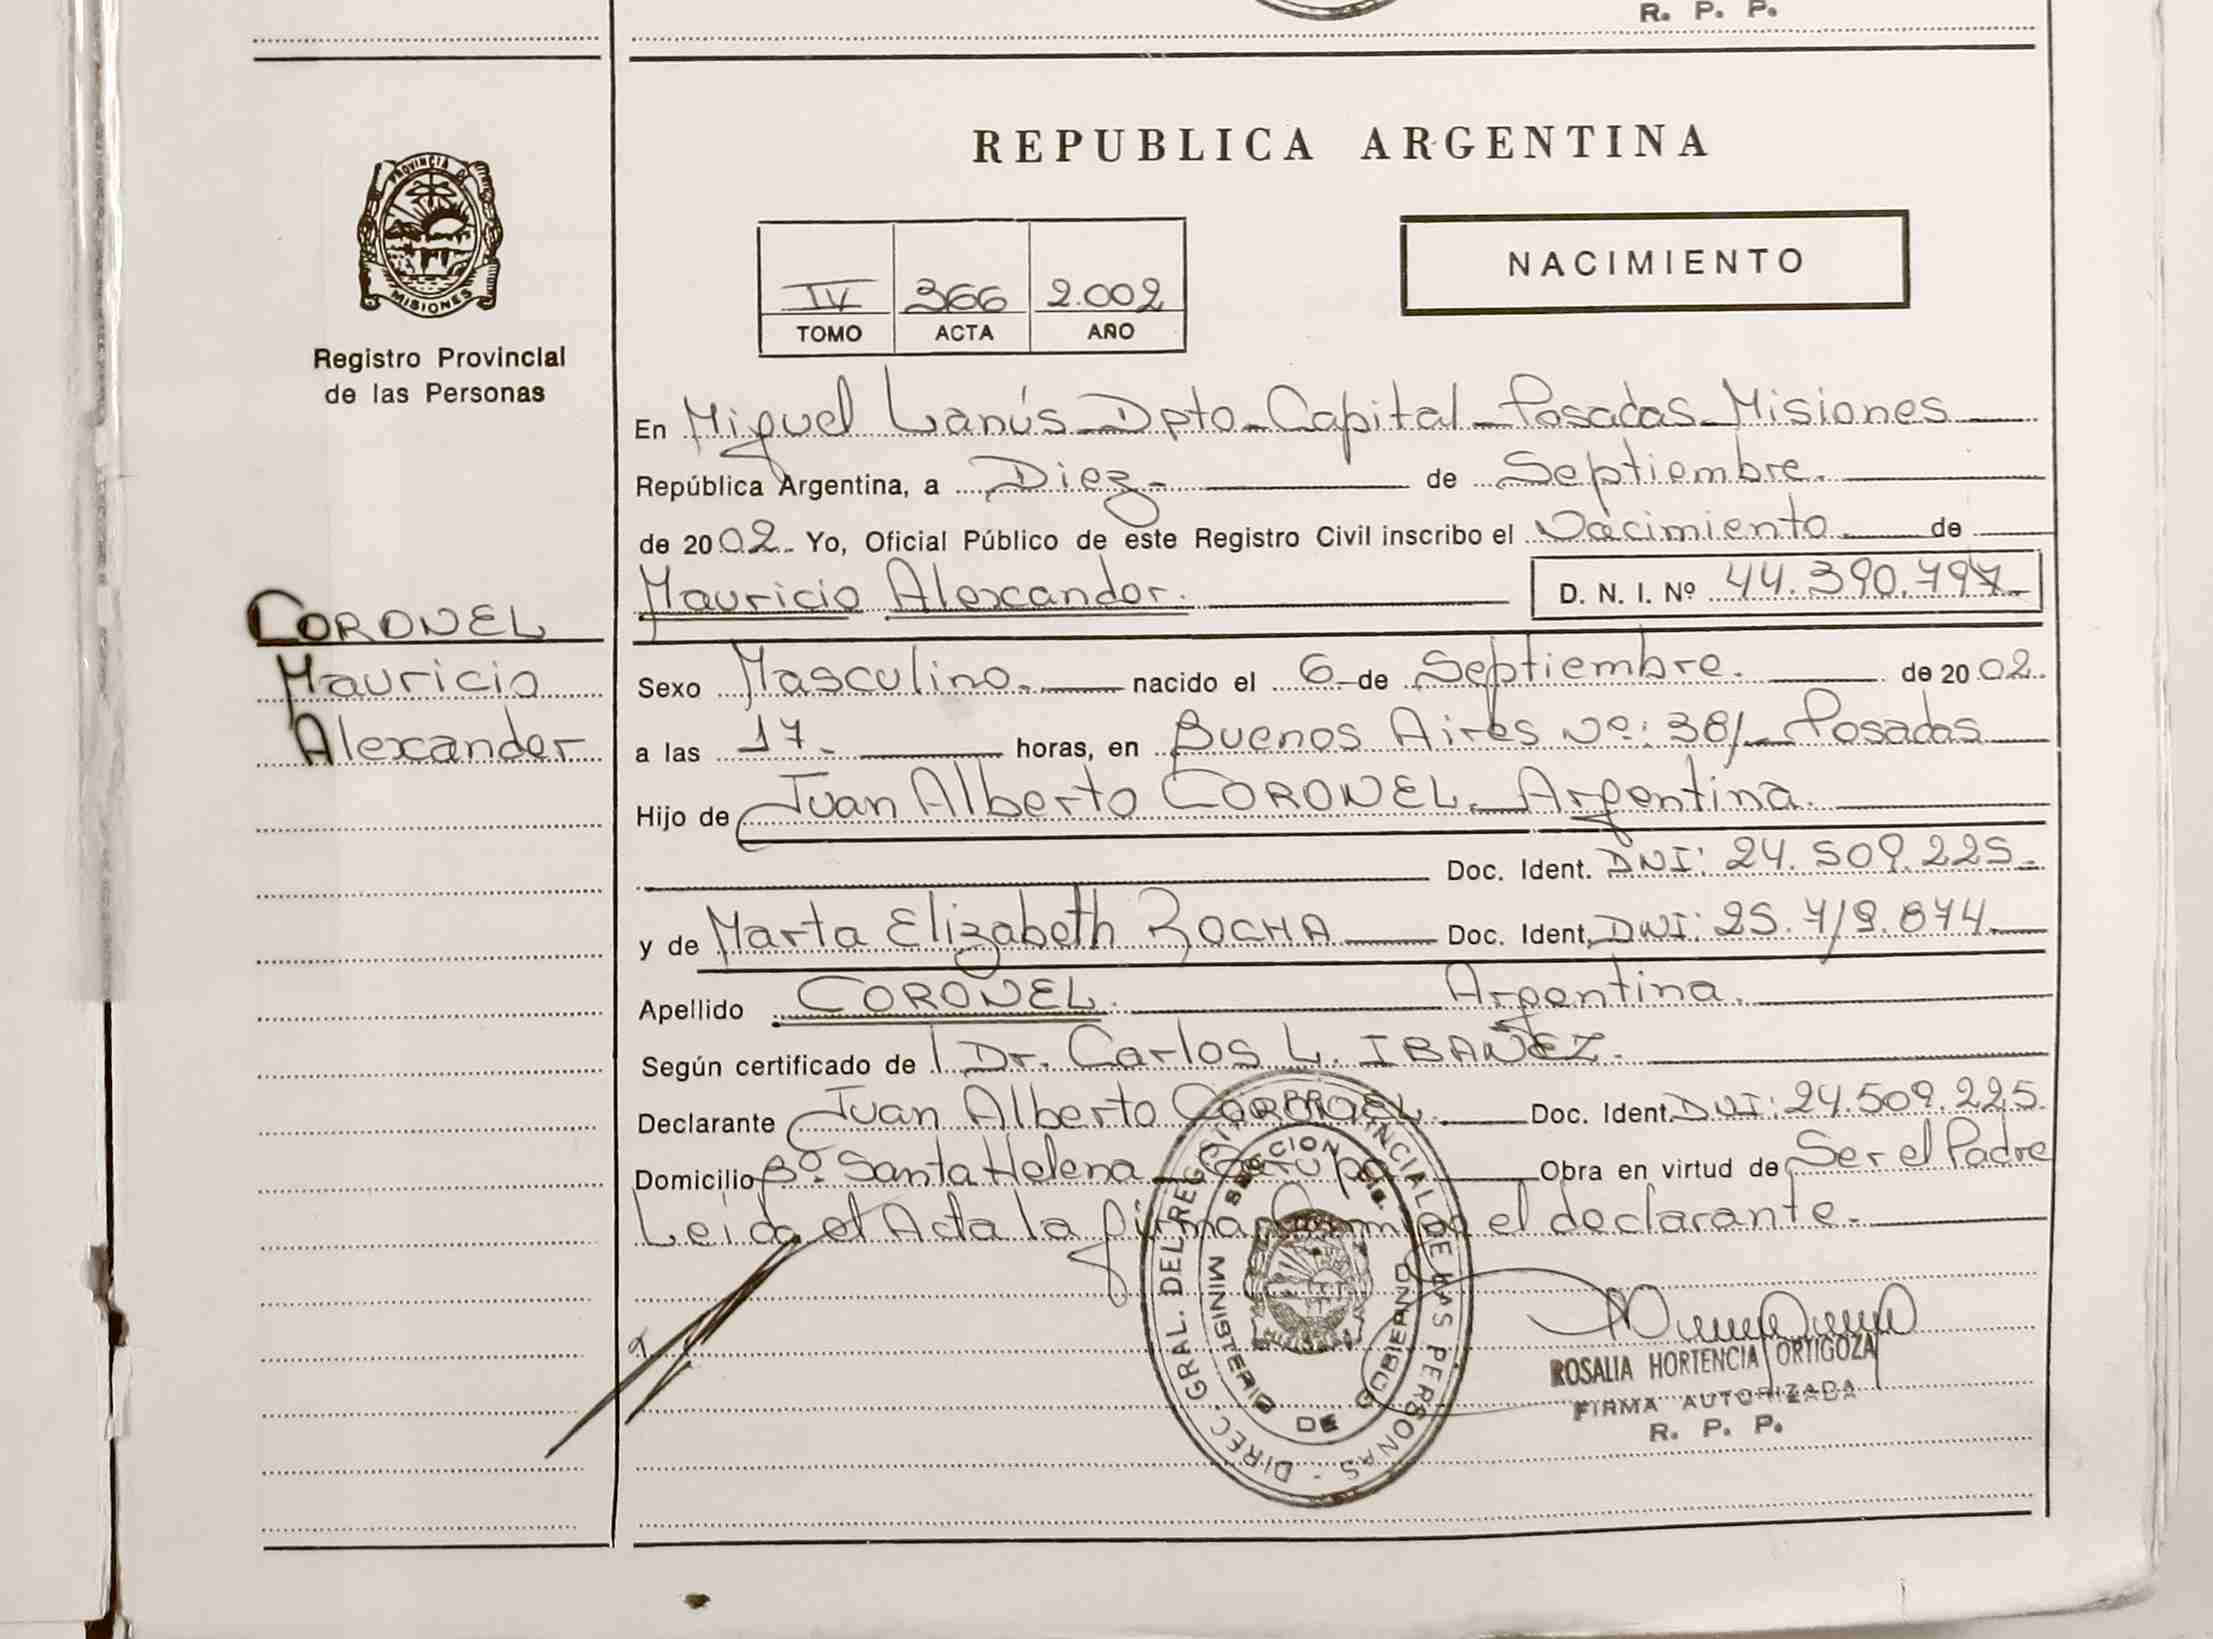 R. P. P.
REPUBLICA ARGENTINA
PROVINCIA DE
MISIONES
Registro Provincial
de las Personas
IV 366 2.002
TOMO ACTA AÑO
NACIMIENTO
En Miguel Lanús - Dpto - Capital - Posadas - Misiones
República Argentina, a Diez - de Septiembre.
de 2002. Yo, Oficial Público de este Registro Civil inscribo el Nacimiento de
Mauricio Alexander. D. N. I. Nº 44.390.797.-
CORONEL
Mauricio
Alexander
Sexo Masculino. nacido el 6 de Septiembre. de 2002.
a las 17. horas, en Buenos Aires Nº: 38/ - Posadas
Hijo de Juan Alberto CORONEL. Argentina.
Doc. Ident. DNI: 24.509.225.-
y de Marta Elizabeth ROCHA Doc. Ident. DNI: 25.719.874.
Apellido CORONEL. Argentina.
Según certificado de Dr. Carlos L. IBAÑEZ.
Declarante Juan Alberto CORONEL. Doc. Ident. DNI: 24.509.225.
Domicilio Bº. Santa Helena - Garupá Obra en virtud de Ser el Padre
Leida el Acta la firma conmigo el declarante.-
DIREC. GRAL. DEL REG. PROVINCIAL DE LAS PERSONAS -
MINISTERIO DE GOBIERNO
ROSALIA HORTENCIA ORTIGOZA
FIRMA AUTORIZADA
R. P. P.